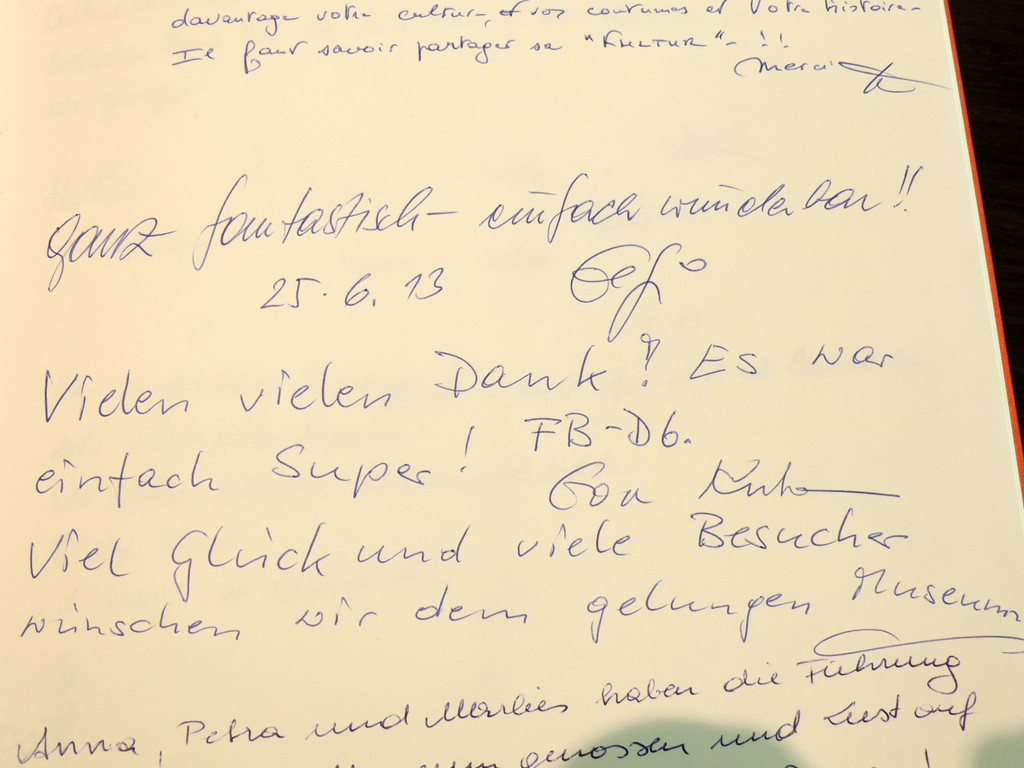 davantage votre culture, et vos coutumes et Votre histoire.
Il faut savoir partager sa "KULTUR" - !!
Merci
ganz fantastisch - einfach wunderbar!!
25.6.13
Vielen vielen Dank! Es war
einfach Super! FB-Db.
Viel Glück und viele Besucher
wünschen wir dem gelungen Museum
Anna, Petra und Marlies haben die Führung
genossen und Lust auf